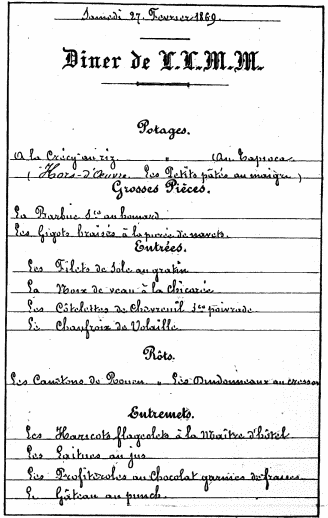 Samedi 27. Fevrier 1869.
Diner de L.L.M.M.
Potages.
A la Crécy au riz " Au Tapioca
( Hors-d'Œuvre. Les Petits pâtés au maigre )
Grosses Pièces.
La Barbue Sce au homard
Les Gigots braisés à la purée de navets.
Entrées.
Les Filets de Sole au gratin
La Noix de veau à la chicorée
Les Côtelettes de Chevreuil Sce poivrade
Le Chaufroix de Volaille
Rôts.
Les Canetons de Rouen " Les Dindonneaux au cresson
Entremets.
Les Haricots flageolets à la Maître d'hôtel
Les Laitues au jus
Les Profiteroles au Chocolat garnies de fraises
Le Gâteau au punch